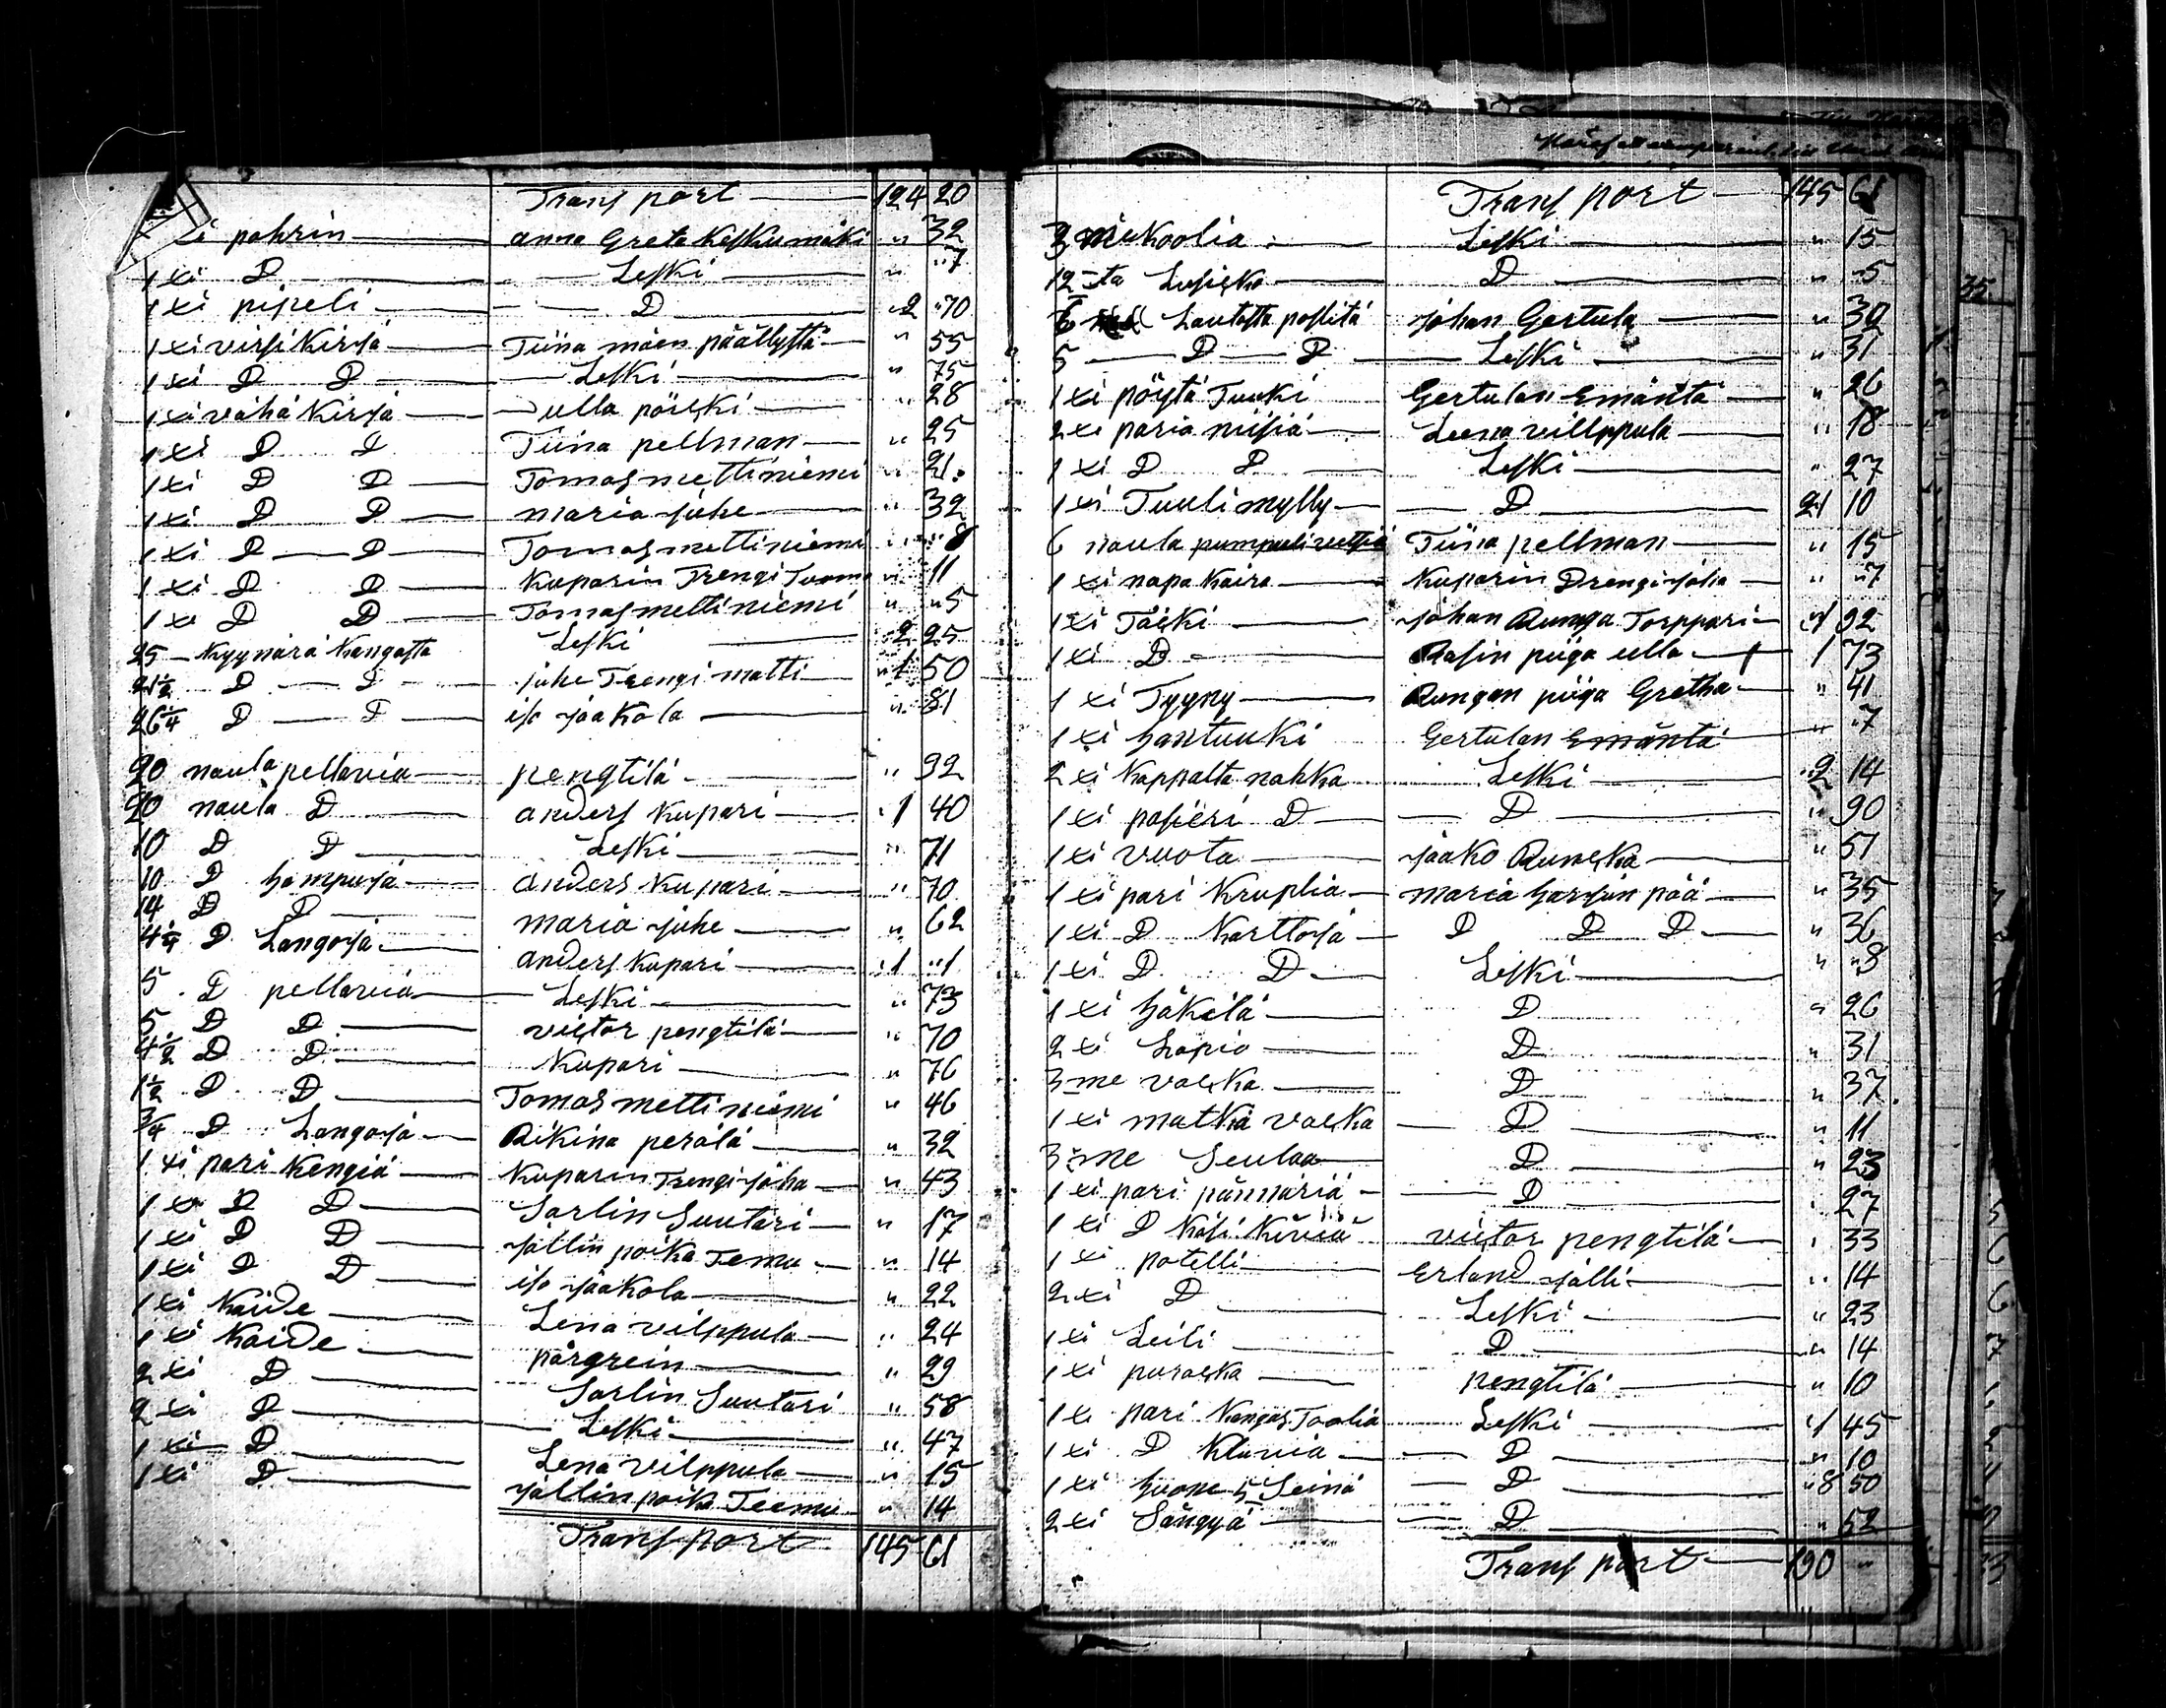 Transport 124 20
pahrin anna Greta Keskumäki " 32
1 xi D Leski " "7
1 xi pipeli D "2 "70
1 xi virsi Kirja Tiina mäen päällystä " 55
1 xi D D Leski " 75
1 xi vähä Kirja ulla pörski " 28
1 xi D D Tiina pellman " 25
1 xi D D Tomas mettiniemi " 21
1 xi D D maria juhe " 32
1 xi D D Tomas mettiniemi " "8
1 xi D D Kuparin Trengi Tuoma " 11
1 xi D D Tomas mettiniemi " "5
25 Kyynärä Kangasta Leski "2 25
21½ D D juhe Trengi matti "1 50
26¼ D D iso jaakola " 81
20 naula pellavia pengtilä " 92
20 naula D anders Kupari "1 40
10 D D Leski " 71
10 D hampuja anders Kupari " 70
14 D D maria juhe " 62
4¼ D Langoja anders Kupari "1 "1
5 D pellavia Leski " 73
5 D D victor pengtilä " 70
4½ D D Kupari " 76
1½ D D Tomas mettiniemi " 46
¾ D Langoja Rikina perälä " 32
1 xi pari Kengiä Kuparin Trengi joha " 43
1 xi D D Sarlin Suutari " 17
1 xi D D jällin poika Temu " 14
1 xi D D iso jaakola " 22
1 xi Kaide Lena vilppula " 24
1 xi Kaide pärgrein " 29
2 xi D Sarlin Suutari " 58
2 xi D Leski " 47
1 xi D Lena vilppula " 15
1 xi D jällin poika Teemu " 14
Transport 145 61
Transport 145 61
3 nikoolia Leski " 15
12 ta Lusicka D " "5
6 Lautasta poslitä johan Gertula " 30
5 D D Leski " 31
1 xi pöytä Tuuki Gertulan Emäntä " 26
2 xi paria niisiä Leena villppula " 18
1 xi D D Leski " 27
1 xi Tuulimylly D 21 10
6 naula pumpuli Tiina pellman " 15
1 xi napa Kaira Kuparin Drengi joha " "7
1 xi Täcki johan Runga Torppari "1 92
1 xi D Rasin piiga ulla 1 73
1 xi Tyyny Rungan piiga Gretha " 41
1 xi hantuuki Gertulan Emäntä " "7
2 xi Kappalta nahka Leski "2 14
1 xi pasieri D D " 90
1 xi vuota jaako Runcka " 51
1 xi pari Kruplia maria harjun pää " 35
1 xi D Karttoja D D D " 36
1 xi D D Leski " "8
1 xi häkilä D " 26
2 xi Lapio D " 31
3 me vacka D " 37
1 xi matka vacka D " 11
3 me Seulaa D " 23
1 xi pari pännäriä D " 27
1 xi D Käsi Kiviä victor pengtilä " 33
1 xi potelli Erland jälli " 14
2 xi D Leski " 23
1 xi Leili D " 14
1 xi puracka pengtilä " 10
1 xi pari Kangas Toolia Leski "1 45
1 xi D Kluvia D " 10
1 xi huone 5 Seinä D "8 50
2 xi Sängyä D " 52
Transport 190 "